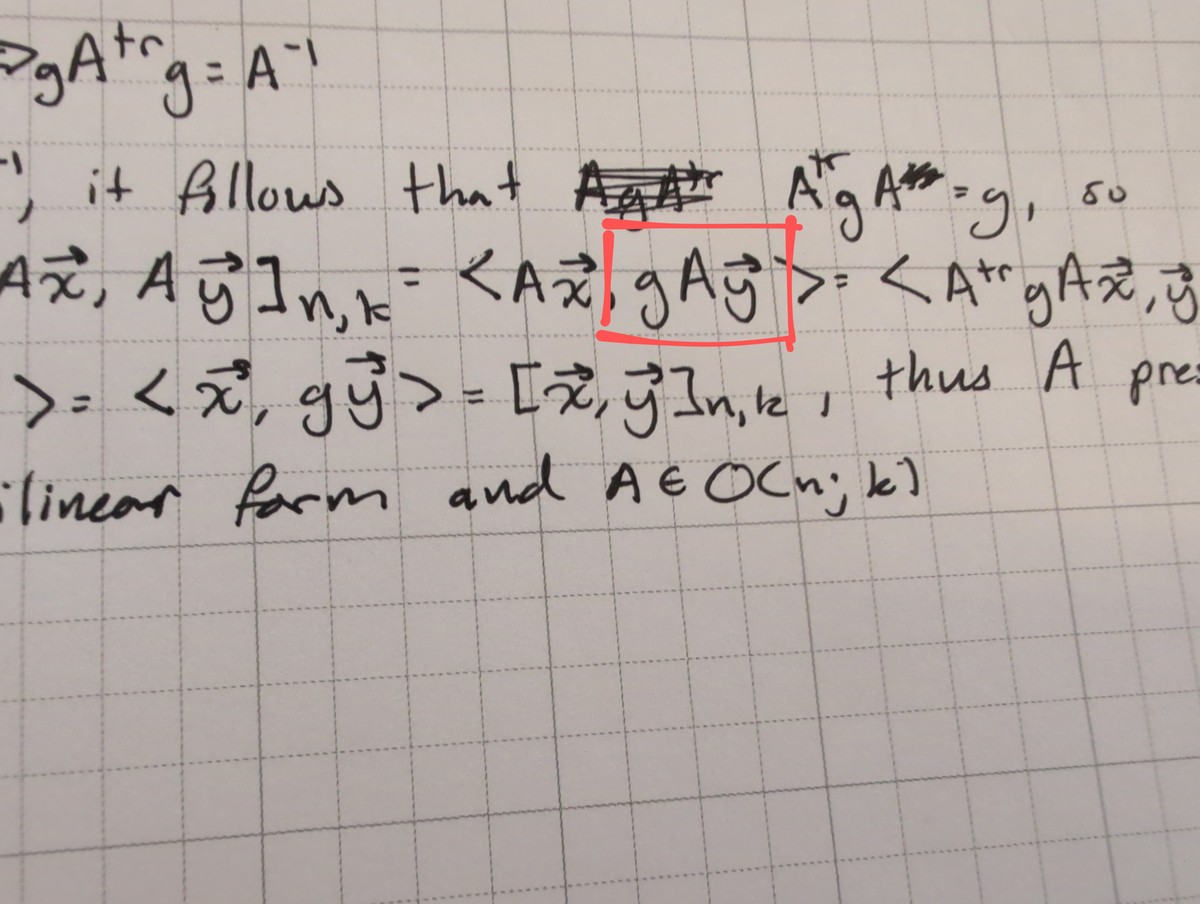 ⇒gA^tr g = A^-1
-1, it follows that A^tr g A = g, so
A x⃗, A y⃗ ]n,k = <A x⃗, g A y⃗ > = < A^tr g A x⃗, y⃗
> = < x⃗, g y⃗ > = [ x⃗, y⃗ ]n,k , thus A pres
ilinear form and A ∈ O(n; k)